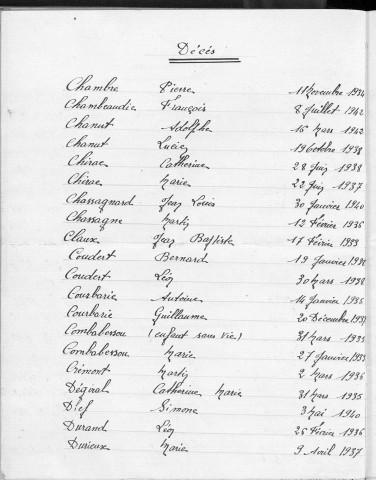 Décés
Chambre Pierre 11 Novembre 1934
Chambeaudie François 8 Juillet 1942
Chanut Adolphe 16 Mars 1942
Chanut Lucie 19 Octobre 1938
Chirac Catherine 28 Juin 1938
Chirac Marie 22 Juin 1937
Chassagnard Jean Louis 30 Janvier 1940
Chassagne Martin 12 Février 1936
Claux Jean Baptiste 17 Février 1933
Coudert Bernard 19 Janvier
Coudert Léon 30 Mars 1938
Courbarie Antoine 14 Janvier 1935
Courbarie Guillaume 20 Décembre
Combabessou (enfant sans vie) 31 Mars 1935
Combabessou Marie 27 Janvier
Crémont Martin 2 Mars 1936
Dégiral Catherine Marie 31 Mars 1935
Simone 3 Mai 1940
Durand Léon 25 Février 1936
Durieux Marie 9 Avril 1937